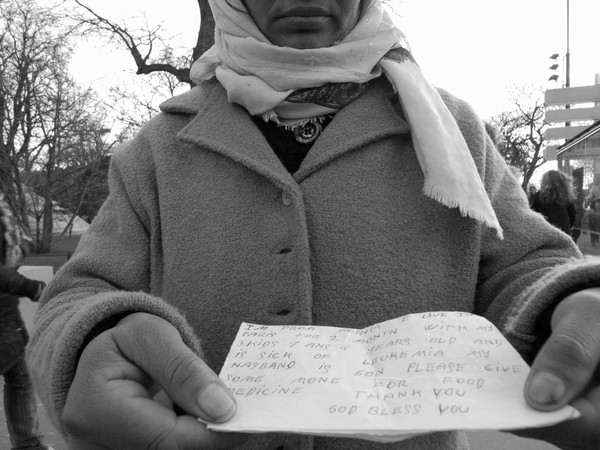 I'M FROM I LIVE IN
PARK FOR 2 MONTH WITH MY
3KIDS 7 ANS 5 YEARS OLD AND
IS SICK OF LEUKEMIA MY
HASBAND IS GON PLEASE GIVE
SOME MONE FOR FOOD
MEDICINE THANK YOU
GOD BLESS YOU